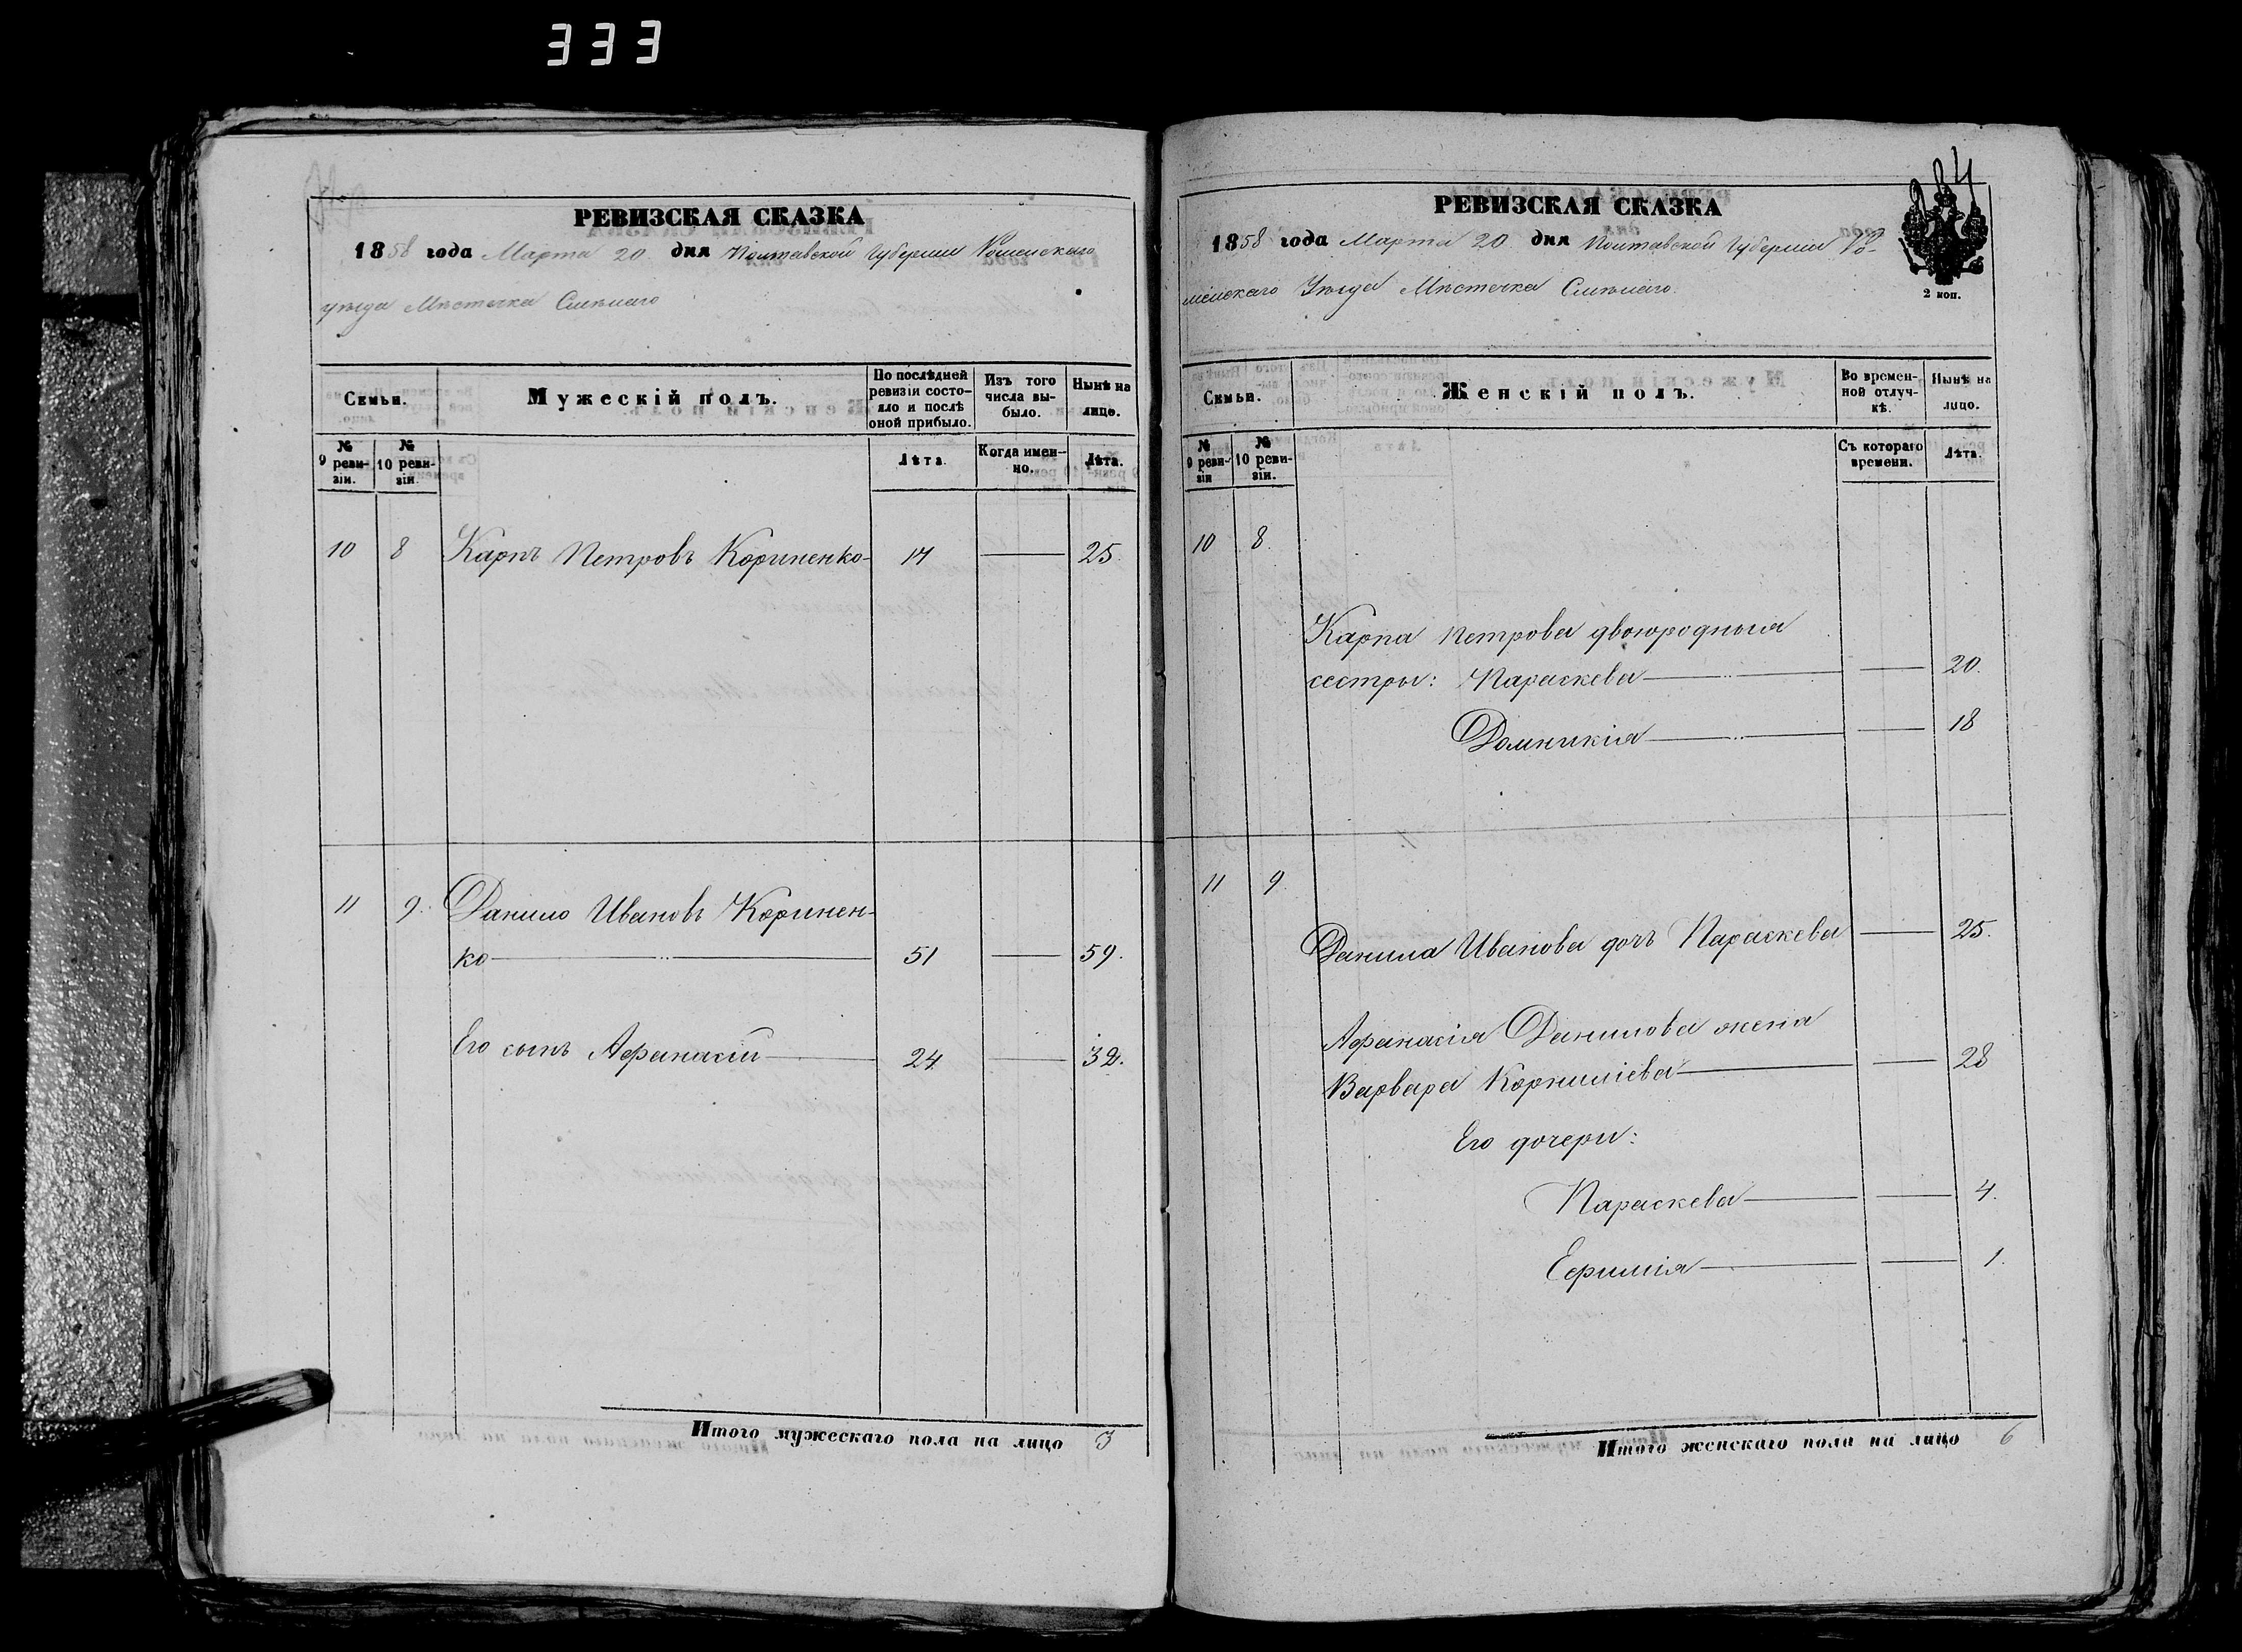 333
РЕВИЗСКАЯ СКАЗКА
1858 года Марта 20 дня Полтавской Губерніи Роменскаго
уѣзда Мѣстечка Смѣлаго
Семьи.
Мужескій полъ.
По послѣдней ревизіи состояло и послѣ оной прибыло.
Изъ того числа выбыло.
Нынѣ на лице.
№ 9 ревизіи.
№ 10 ревизіи.
Лѣта.
Когда именно.
Лѣта.
10 8 Карпъ Петровъ Кориненко 17 — 25.
11 9. Данило Ивановъ Коринен-
ко 51 — 59.
Его сынъ Афанасій 24 — 32.
Итого мужескаго пола на лицо 3
284
РЕВИЗСКАЯ СКАЗКА
1858 года Марта 20 дня Полтавской Губерніи Ро-
менскаго Уѣзда Мѣстечка Смѣлаго.
2 коп.
Семьи.
Женскій полъ.
Во временной отлучкѣ.
Нынѣ на лицо.
№ 9 ревизіи
№ 10 ревизіи.
Съ котораго времени.
Лѣта.
10 8.
Карпа Петрова двоюродныя
сестры: Параскева — 20.
Домникія — 18
11 9
Данила Иванова дочь Параскева — 25.
Афанасія Данилова жена
Варвара Корниліева — 28
Его дочери:
Параскева — 4.
Ефимія — 1.
Итого женскаго пола на лицо 6